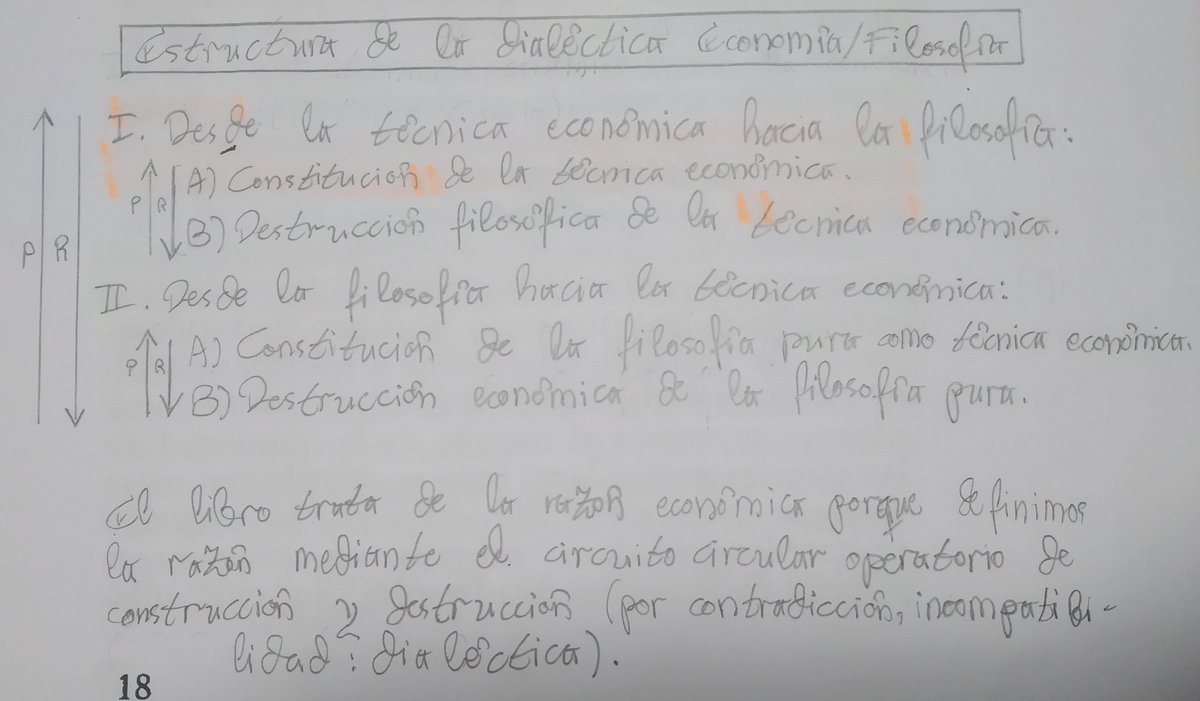 Estructura de la dialéctica Economía/Filosofía
I. Desde la técnica económica hacia la filosofía:
A) Constitución de la técnica económica.
B) Destrucción filosófica de la técnica económica.
P R
P R
II. Desde la filosofía hacia la técnica económica:
A) Constitución de la filosofía pura como técnica económica.
B) Destrucción económica de la filosofía pura.
P R
El libro trata de la razón económica porque definimos
la razón mediante el circuito circular operatorio de
construcción y destrucción (por contradicción, incompatibi-
lidad: dialéctica).
18